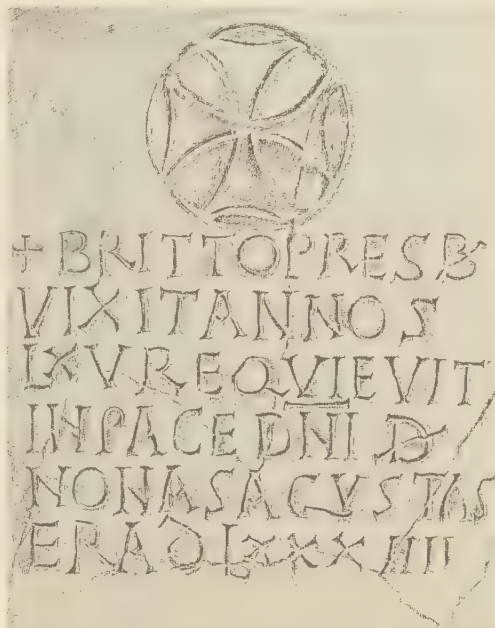 + BRITTO PRESB
VIXIT ANNOS
LXV REQVIEVIT
IN PACE DNI D
NONAS AGVSTAS
ERA DLXXXIIII